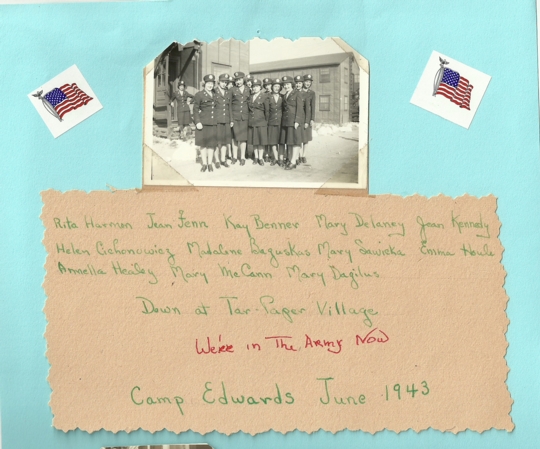 Rita Harmon Jean Fenn Kay Benner Mary Delaney Jean Kennedy
Helen Cichonowicz Madalene Baguskas Mary Sawicka Emma Houle
Annella Healey Mary McCann Mary Dagilus
Down at Tar-Paper Village
We're in The Army Now
Camp Edwards June 1943